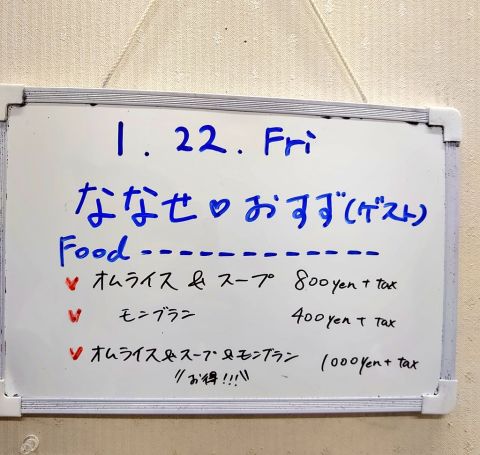 1. 22. Fri
ななせ♡おすず(ゲスト)
Food -------------
✓ オムライス & スープ 800yen + tax
✓ モンブラン 400yen + tax
✓ オムライス&スープ&モンブラン 1000yen + tax
\\お得!!!//